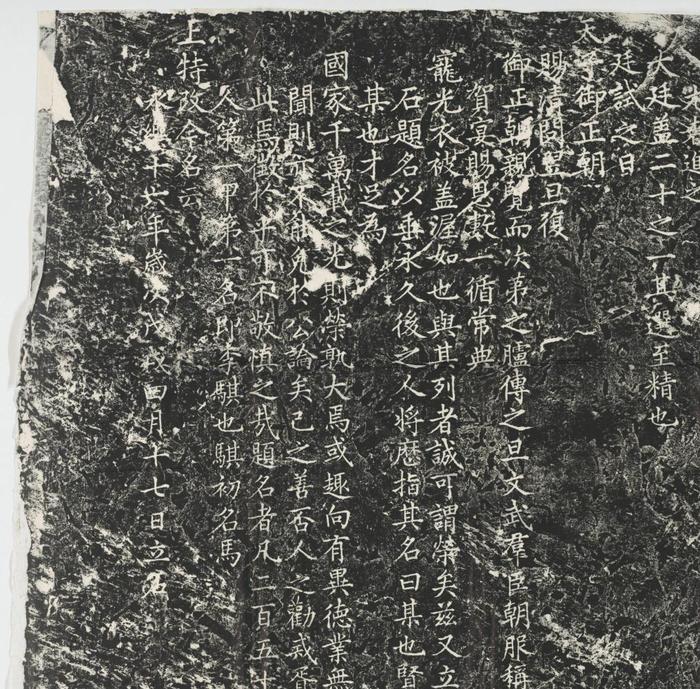 大廷蓋二十之一其選至精也
廷試之日
天子御正朝
賜清問翌旦復
御正朝親覽而次第之臚傳之旦文武羣臣朝服稱
賀宴賜恩數一循常典
寵光衣被蓋渥如也與其列者誠可謂榮矣茲又立
石題名以垂永久後之人將歷指其名曰某也賢
某也才足為
國家千萬載之光則榮孰大焉或趣向有異德業無
聞則亦不能免於公論矣己之善否人之勸戒胥
此焉徵於乎可不敬慎之哉題名者凡二百五十
人第一甲第一名即李騏也騏初名馬
上特改今名云
永樂十六年歲次戊戌四月十七日立石